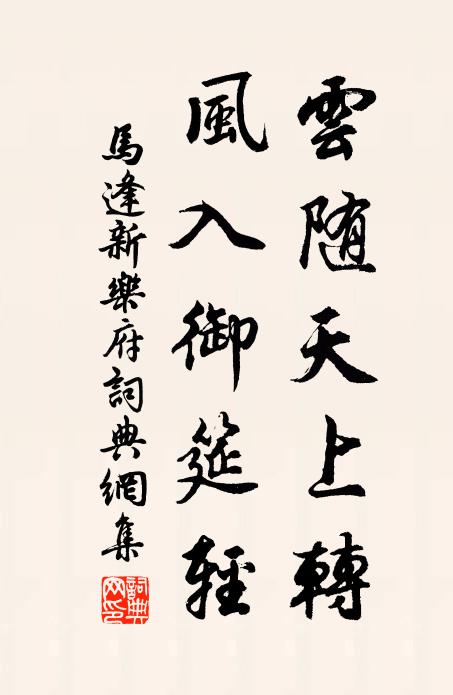 雲随天上轉
風入御筵輕
馬逢新樂府詞典網集
詞典網印